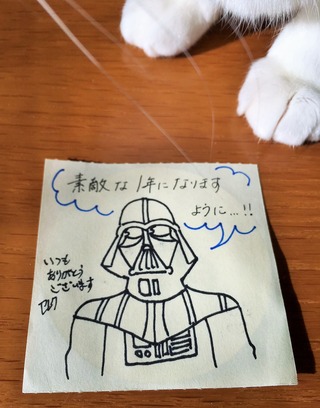 素敵な1年になります
ように…!!
いつも
ありがとう
ございます